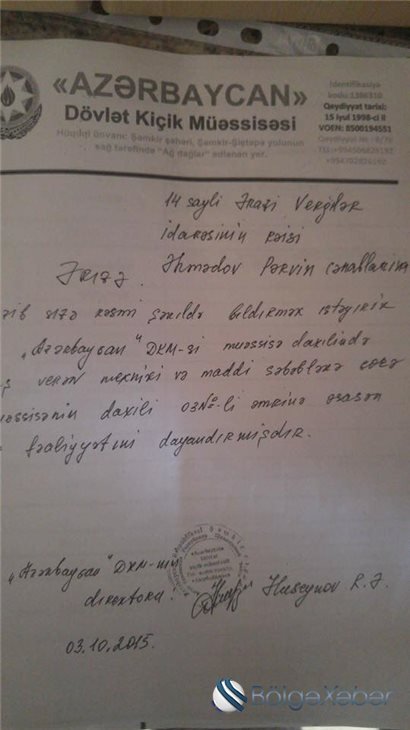 «AZƏRBAYCAN»
Dövlət Kiçik Müəssisəsi
Hüquqi ünvanı: Şəmkir şəhəri, Şəmkir-Şiştəpə yolunun
sağ tərəfində "Ağ dağlar" adlanan yer.
Identifikasiya
kodu:1366310
Qeydiyyat tarixi:
15 iyul 1998-ci il
VÖEN: 8500194551
14 saylı Ərazi Vergilər
idarəsinin rəisi
Əhmədov Pərvin cənablarına
Ərizə
sizə rəsmi şəkildə bildirmək istəyirik
"Azərbaycan" DKM-si müəssisə daxilində
verən texniki və maddi səbəblərə görə
daxili 03№-li əmrinə əsasən
fəaliyyətini dayandırmışdır.
"Azərbaycan" DKM-nin
direktoru. Huseynov R.Ə.
03.10.2015.
BölgəXəbər